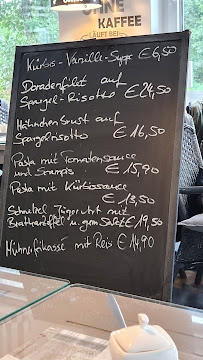 OHNE
KAFFEE
LÄUFT BEI
Kürbis-Vanille-Suppe €6,50
Doradenfilet auf
Spargel-Risotto €24,50
Hähnchenbrust auf
Spargelrisotto €16,50
Pasta mit Tomatensauce
und Scampis €15,90
Pasta mit Kürbissauce
€13,50
Schnitzel Jägerart mit
Bratkartoffel u. gem Salat €19,50
Hühnerfrikassé mit Reis €14,90